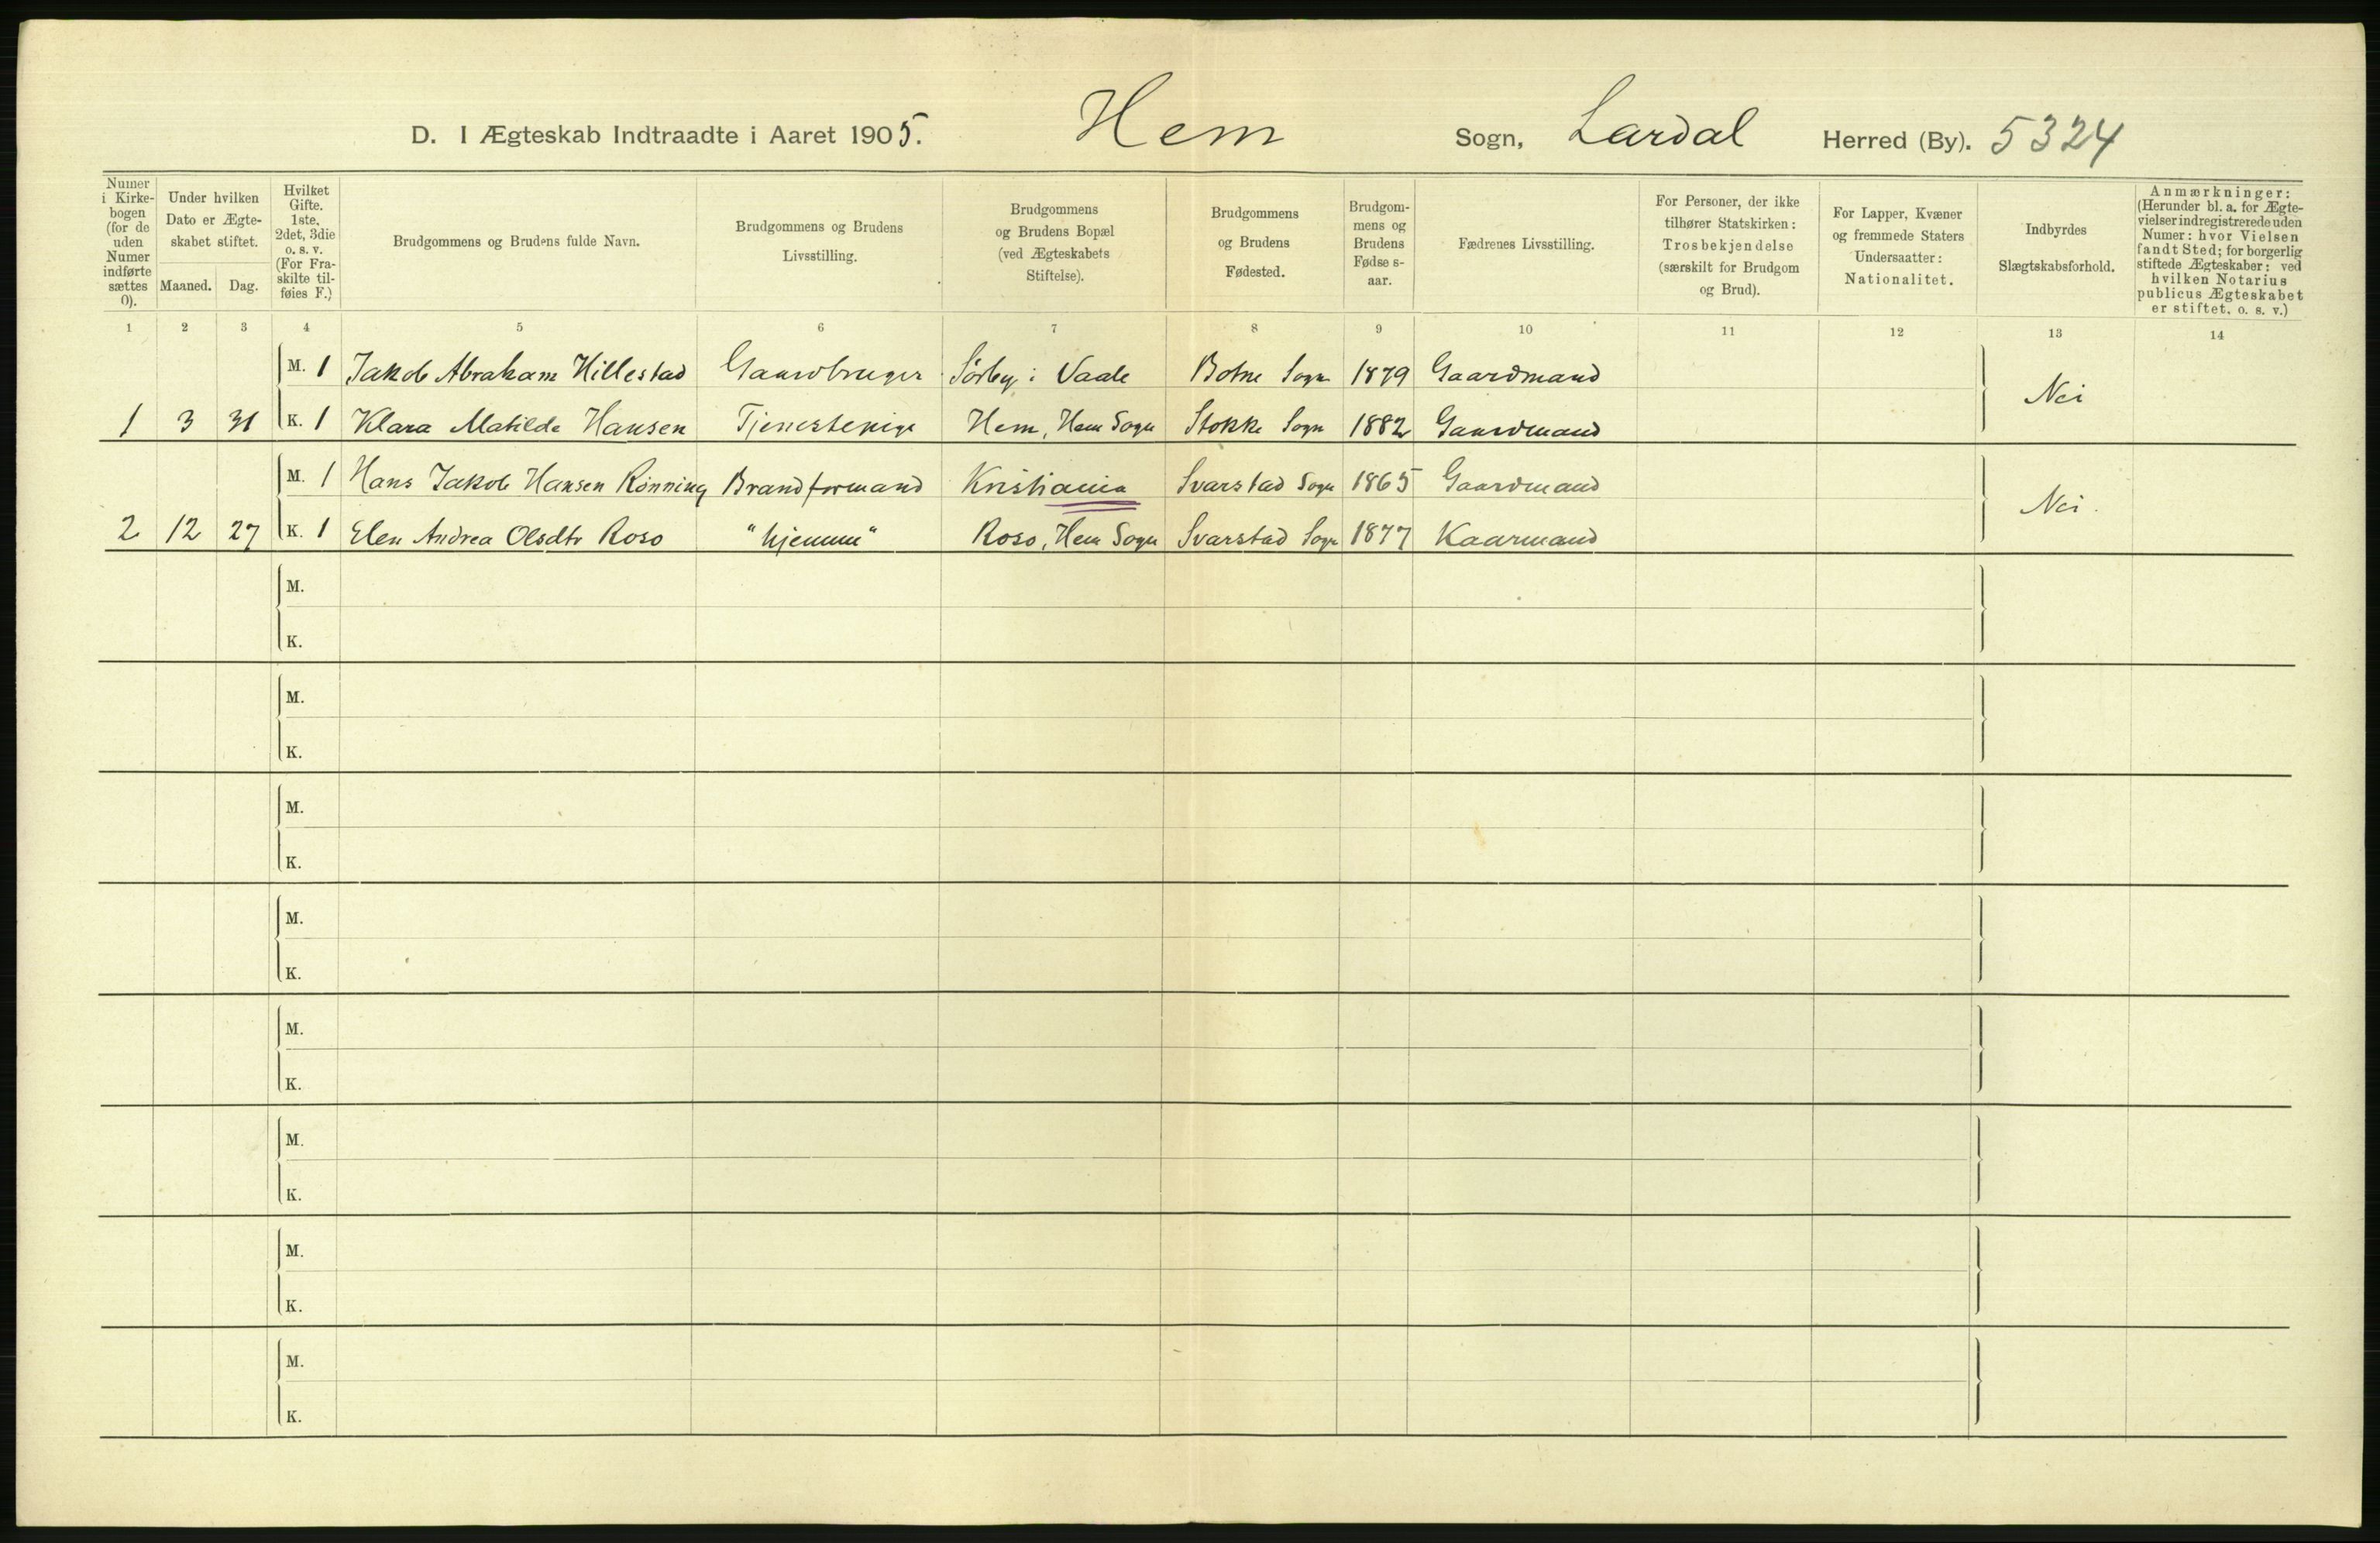 D. I Ægteskab Indtraadte i Aaret 1905. Hem Sogn, Lardal Herred (By). 5324
Numer i Kirkebogen (for de uden Numer indførte sættes 0).
Under hvilken Dato er Ægteskabet stiftet.
Maaned. Dag.
Hvilket Gifte. 1ste, 2det, 3die o. s. v. (For Fraskilte tilføies F.)
Brudgommens og Brudens fulde Navn.
Brudgommens og Brudens Livsstilling.
Brudgommens og Brudens Bopæl (ved Ægteskabets Stiftelse).
Brudgommens og Brudens Fødested.
Brudgommens og Brudens Fødselsaar.
Fædrenes Livsstilling.
For Personer, der ikke tilhører Statskirken: Trosbekjendelse (særskilt for Brudgom og Brud).
For Lapper, Kvæner og fremmede Staters Undersaatter: Nationalitet.
Indbyrdes Slægtskabsforhold.
Anmærkninger: (Herunder bl. a. for Ægtevielser indregistrerede uden Numer: hvor Vielsen fandt Sted; for borgerlig stiftede Ægteskaber: ved hvilken Notarius publicus Ægteskabet er stiftet, o. s. v.)
1 2 3 4 5 6 7 8 9 10 11 12 13 14
M. 1 Jakob Abraham Hillestad Gaardbruger Sörby i Vaale Botne Sogn 1879 Gaardmand
Nei
1 3 31 K. 1 Klara Matilde Hansen Tjenestepige Hem, Hem Sogn Stokke Sogn 1882 Gaardmand
M. 1 Hans Jakob Hansen Rönning Brandformand Kristiania Svarstad Sogn 1865 Gaardmand
Nei.
2 12 27 K. 1 Elen Andrea Olsdtr Roso "hjemme" Roso, Hem Sogn Svarstad Sogn 1877 Kaarmand
M.
K.
M.
K.
M.
K.
M.
K.
M.
K.
M.
K.
M.
K.
M.
K.